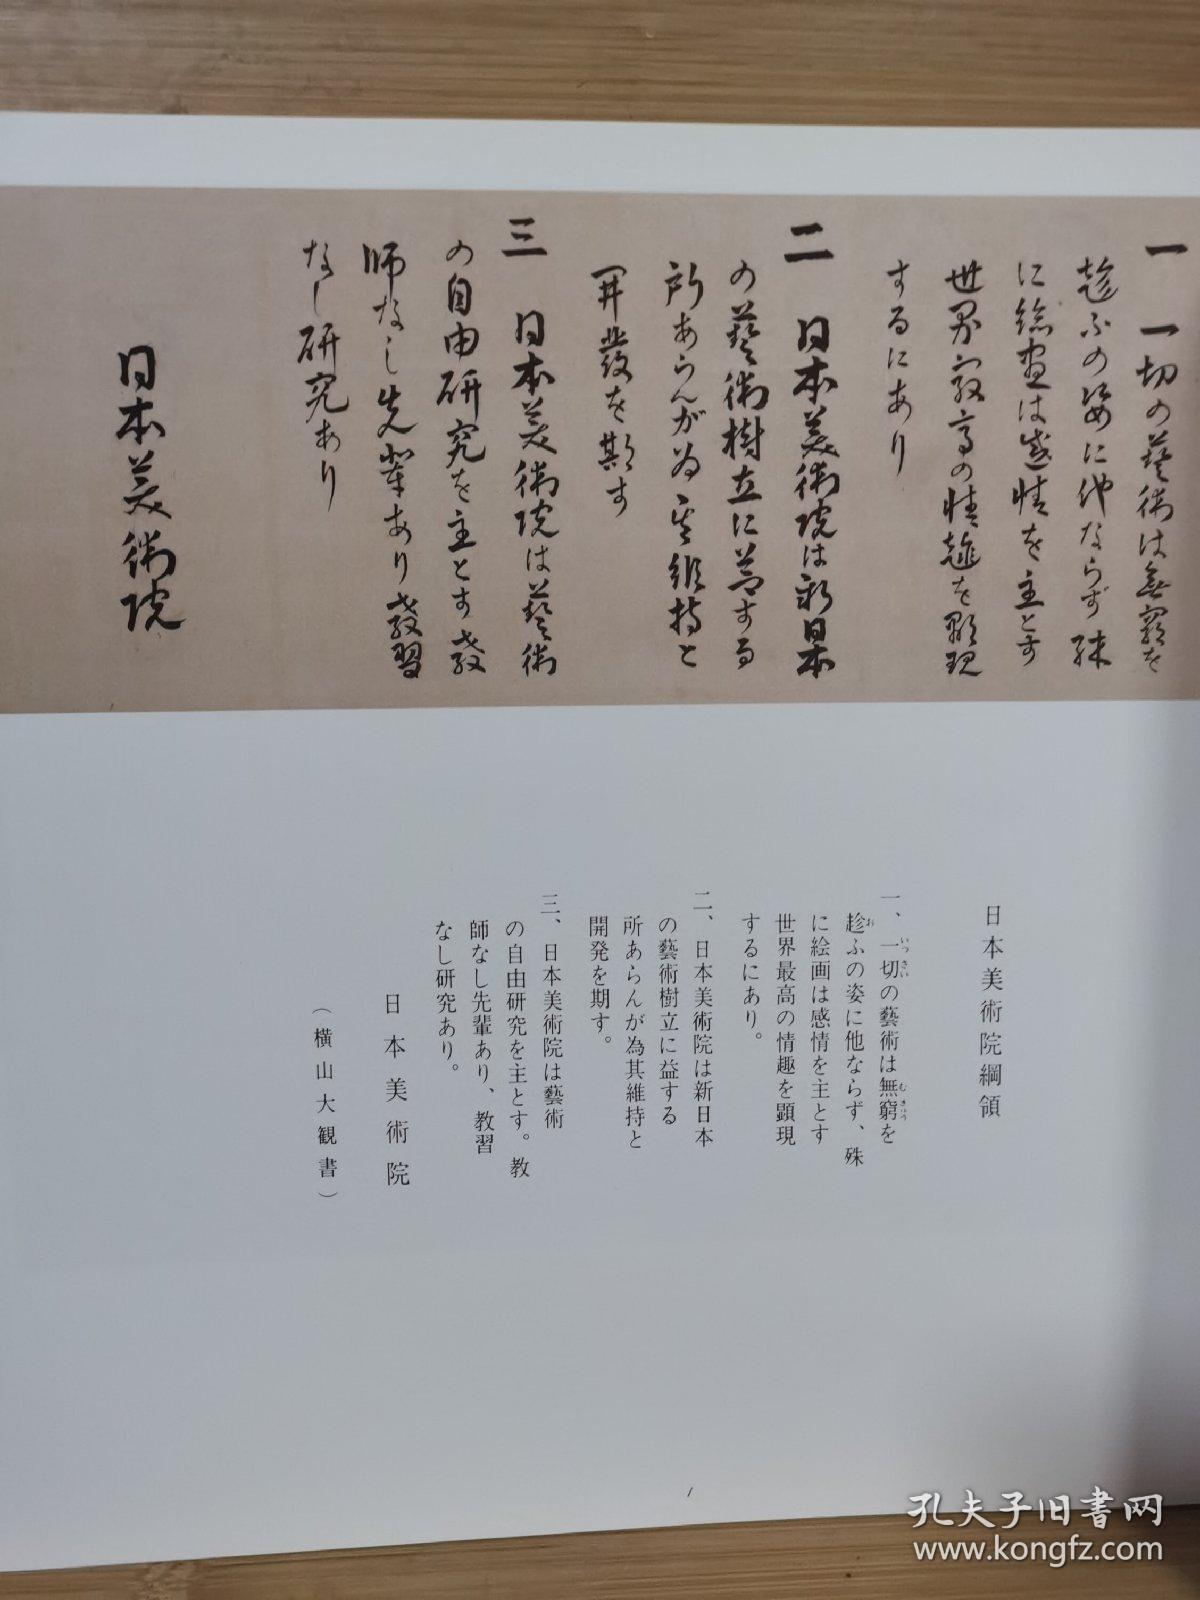 一 一切の藝術は無窮を
趁ふの姿に他ならず 殊
に絵画は感情を主とす
世界最高の情趣を顕現
するにあり
二 日本美術院は新日本
の藝術樹立に益する
所あらんが為其維持と
開發を期す
三 日本美術院は藝術
の自由研究を主とす 教
師なし先輩あり 教習
なし研究あり
日本美術院
日本美術院綱領
一、一切の藝術は無窮を
いっさい
むきゅう
趁ふの姿に他ならず、殊
お
に絵画は感情を主とす
世界最高の情趣を顕現
するにあり。
二、日本美術院は新日本
の藝術樹立に益する
所あらんが為其維持と
開発を期す。
三、日本美術院は藝術
の自由研究を主とす。教
師なし先輩あり、教習
なし研究あり。
日本美術院
（横山大観書）
1
孔夫子旧书网
www.kongfz.com